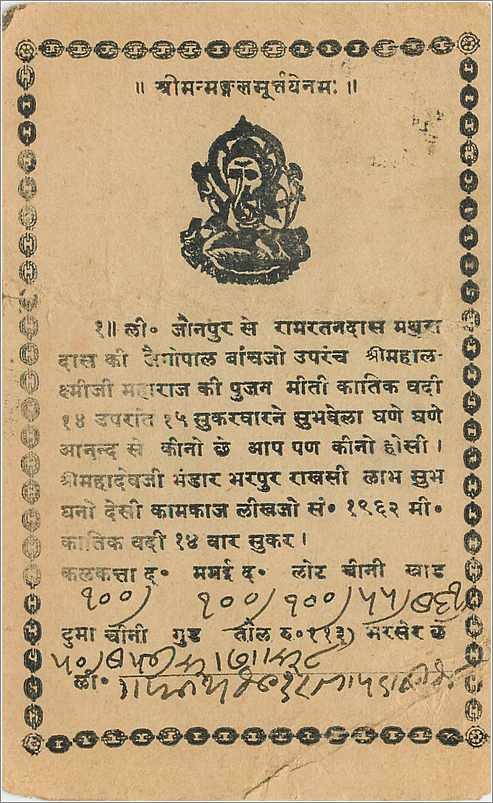 ॥ श्रीमन्मङ्गलमूर्त्तयेनमः ॥
१॥ ली॰ जौनपुर से रामरतनदास मथुरा
दास की जैगोपाल बांचजो उपरंच श्रीमहाल-
क्ष्मीजी महाराज की पुजन मीती कातिक वदी
१४ उपरांत १५ सुकरवारने सुभवेला घणे घणे
आनन्द से कीनो छे आप पण कीनो होसी ।
श्रीमहादेवजी भंडार भरपुर राखसी लाभ सुभ
घनो देसी कामकाज लीखजो सं॰ १९६२ मी॰
कातिक वदी १४ वार सुकर ।
कलकत्ता द॰ ममई द॰ लोट चीनी खाड
१००) १००) १००)
दुमा चीनी गुड तौल द॰ ११३) भरसेर के
ली॰